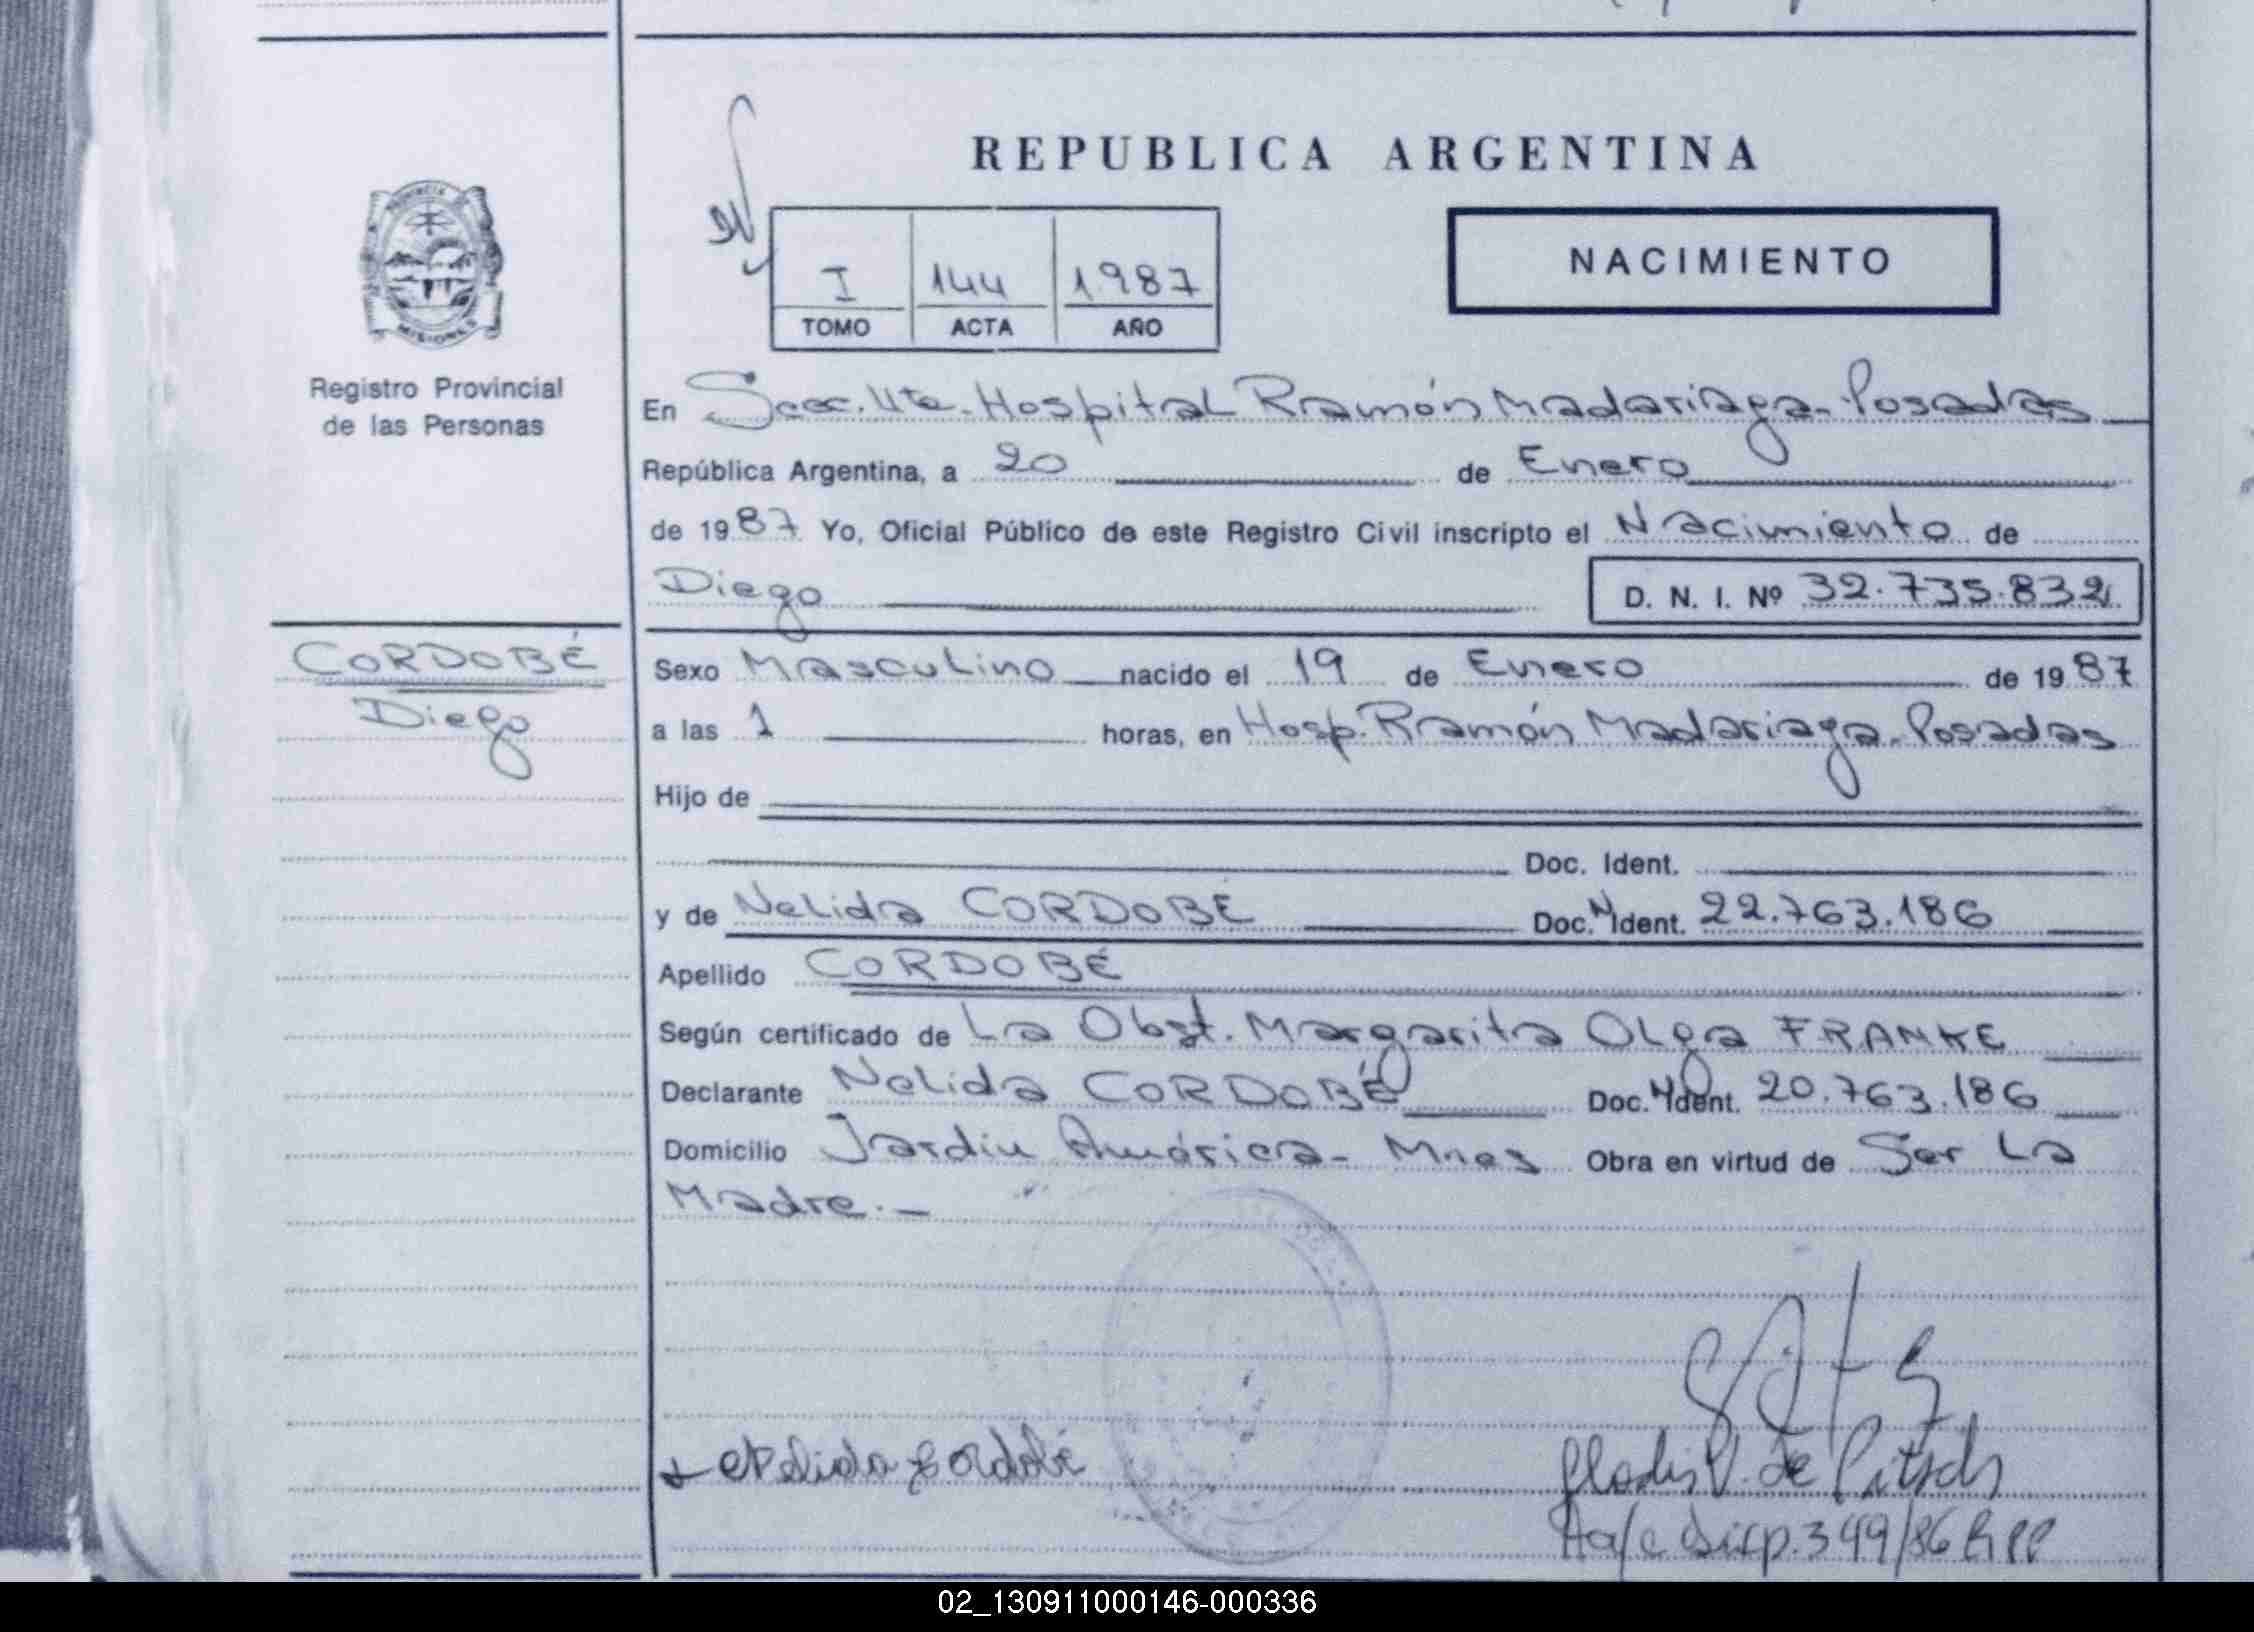 REPUBLICA ARGENTINA
PROVINCIA
MISIONES
Registro Provincial
de las Personas
I 144 1987
TOMO ACTA AÑO
NACIMIENTO
En Secc. Hospital Ramón Madariaga - Posadas
República Argentina, a 20 de Enero
de 1987 Yo, Oficial Público de este Registro Civil inscripto el Nacimiento de
Diego D. N. I. Nº 32.735.832
CORDOBÉ
Diego
Sexo Masculino nacido el 19 de Enero de 1987
a las 1 horas, en Hosp. Ramón Madariaga - Posadas
Hijo de
Doc. Ident.
y de Nelida CORDOBÉ Doc. N Ident. 22.763.186
Apellido CORDOBÉ
Según certificado de La Obst. Margarita Olga FRANKE
Declarante Nelida CORDOBÉ Doc. N Ident. 20.763.186
Domicilio Jardin América - Mnes Obra en virtud de Ser La
Madre. -
Nelida Cordobé
Gladis V. de Pitsch
A/c Disp. 349/86 RPP
02_130911000146-000336